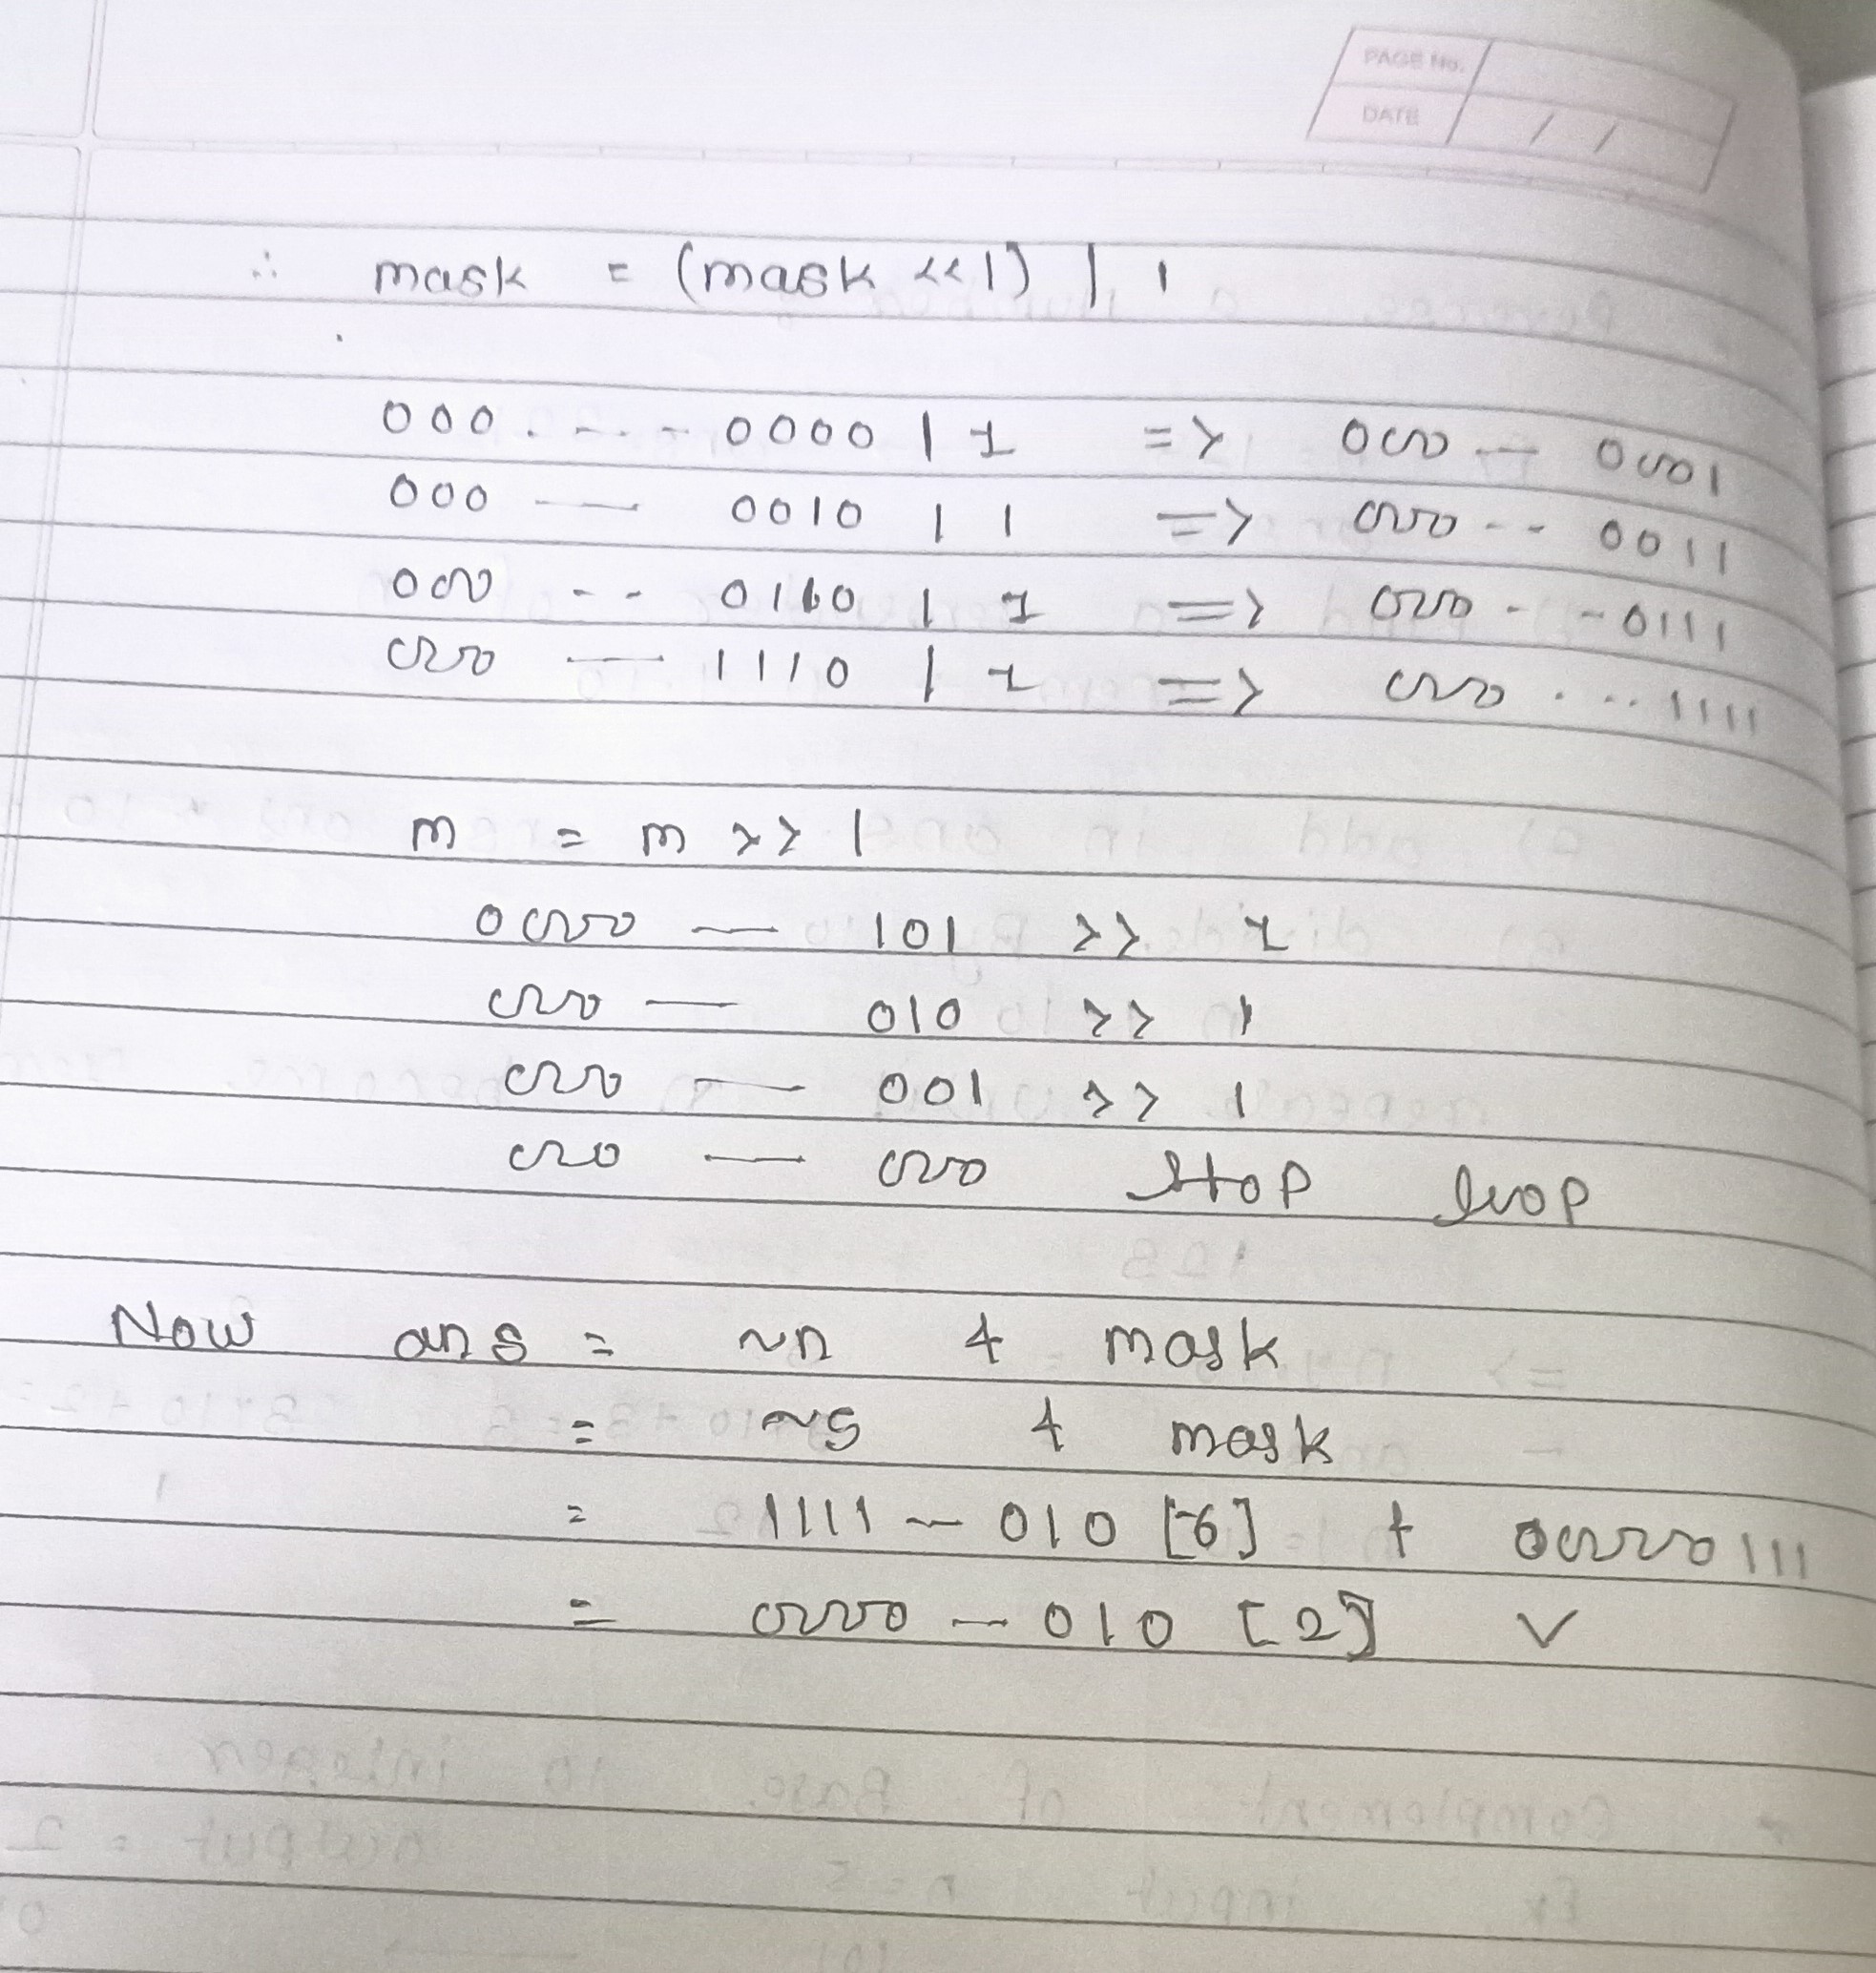 PAGE No.
DATE / /
∴ mask = (mask <<1) | 1
000 . - . . - 0000 | 1 => 000 — 0001
000 — 0010 | 1 => 000 -- 0011
000 -- 0110 | 1 => 000 - - 0111
000 — 1110 | 1 => 000 . ... 1111
m = m >> 1
0000 — 101 >> 1
000 — 010 >> 1
000 — 001 >> 1
000 — 000 Stop loop
Now ans = ~n & mask
= ~5 & mask
= 1111 — 010 [-6] & 0000111
= 0000 — 010 [2] ✓